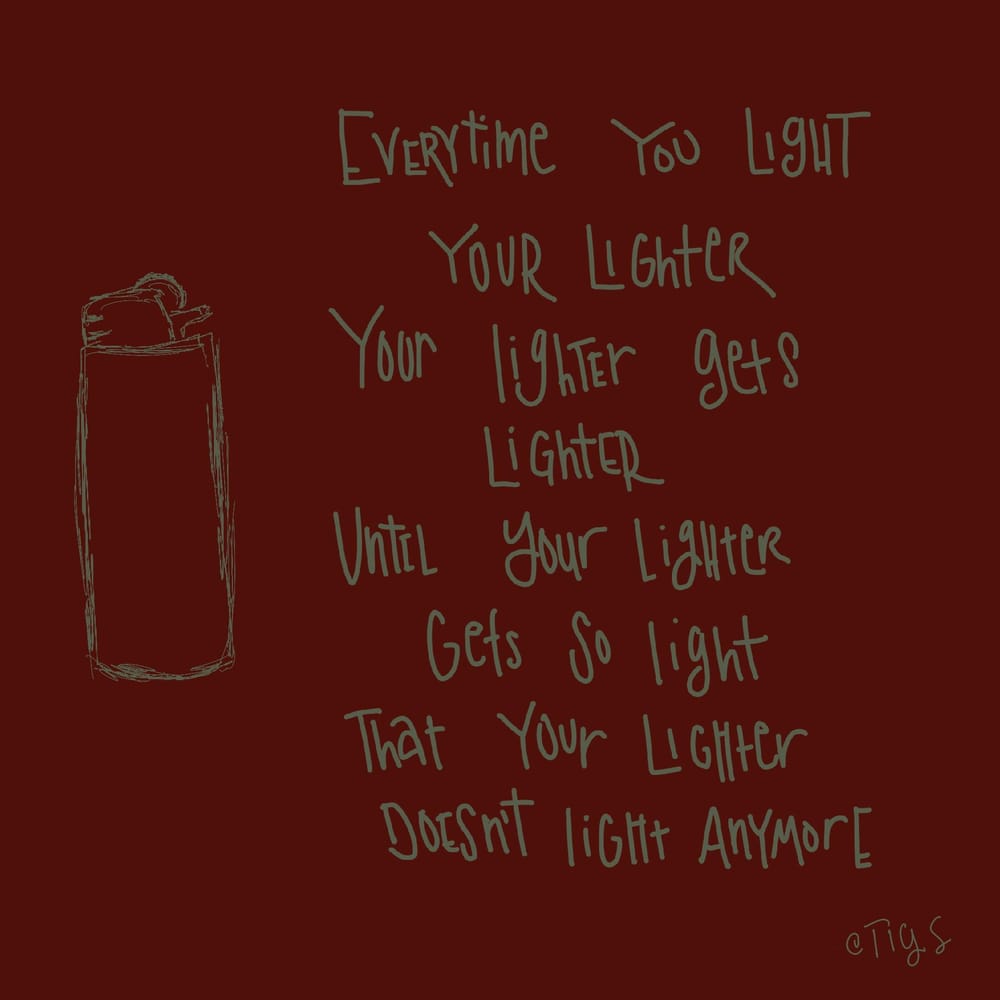 EVERYtime YOU LigHT
YOUR LiGhteR
Your lighTEr gets
LiGhtER
UntiL your LigHteR
Gets So light
That Your LiGHter
DOESn't liGHt AnymorE
@TIGS